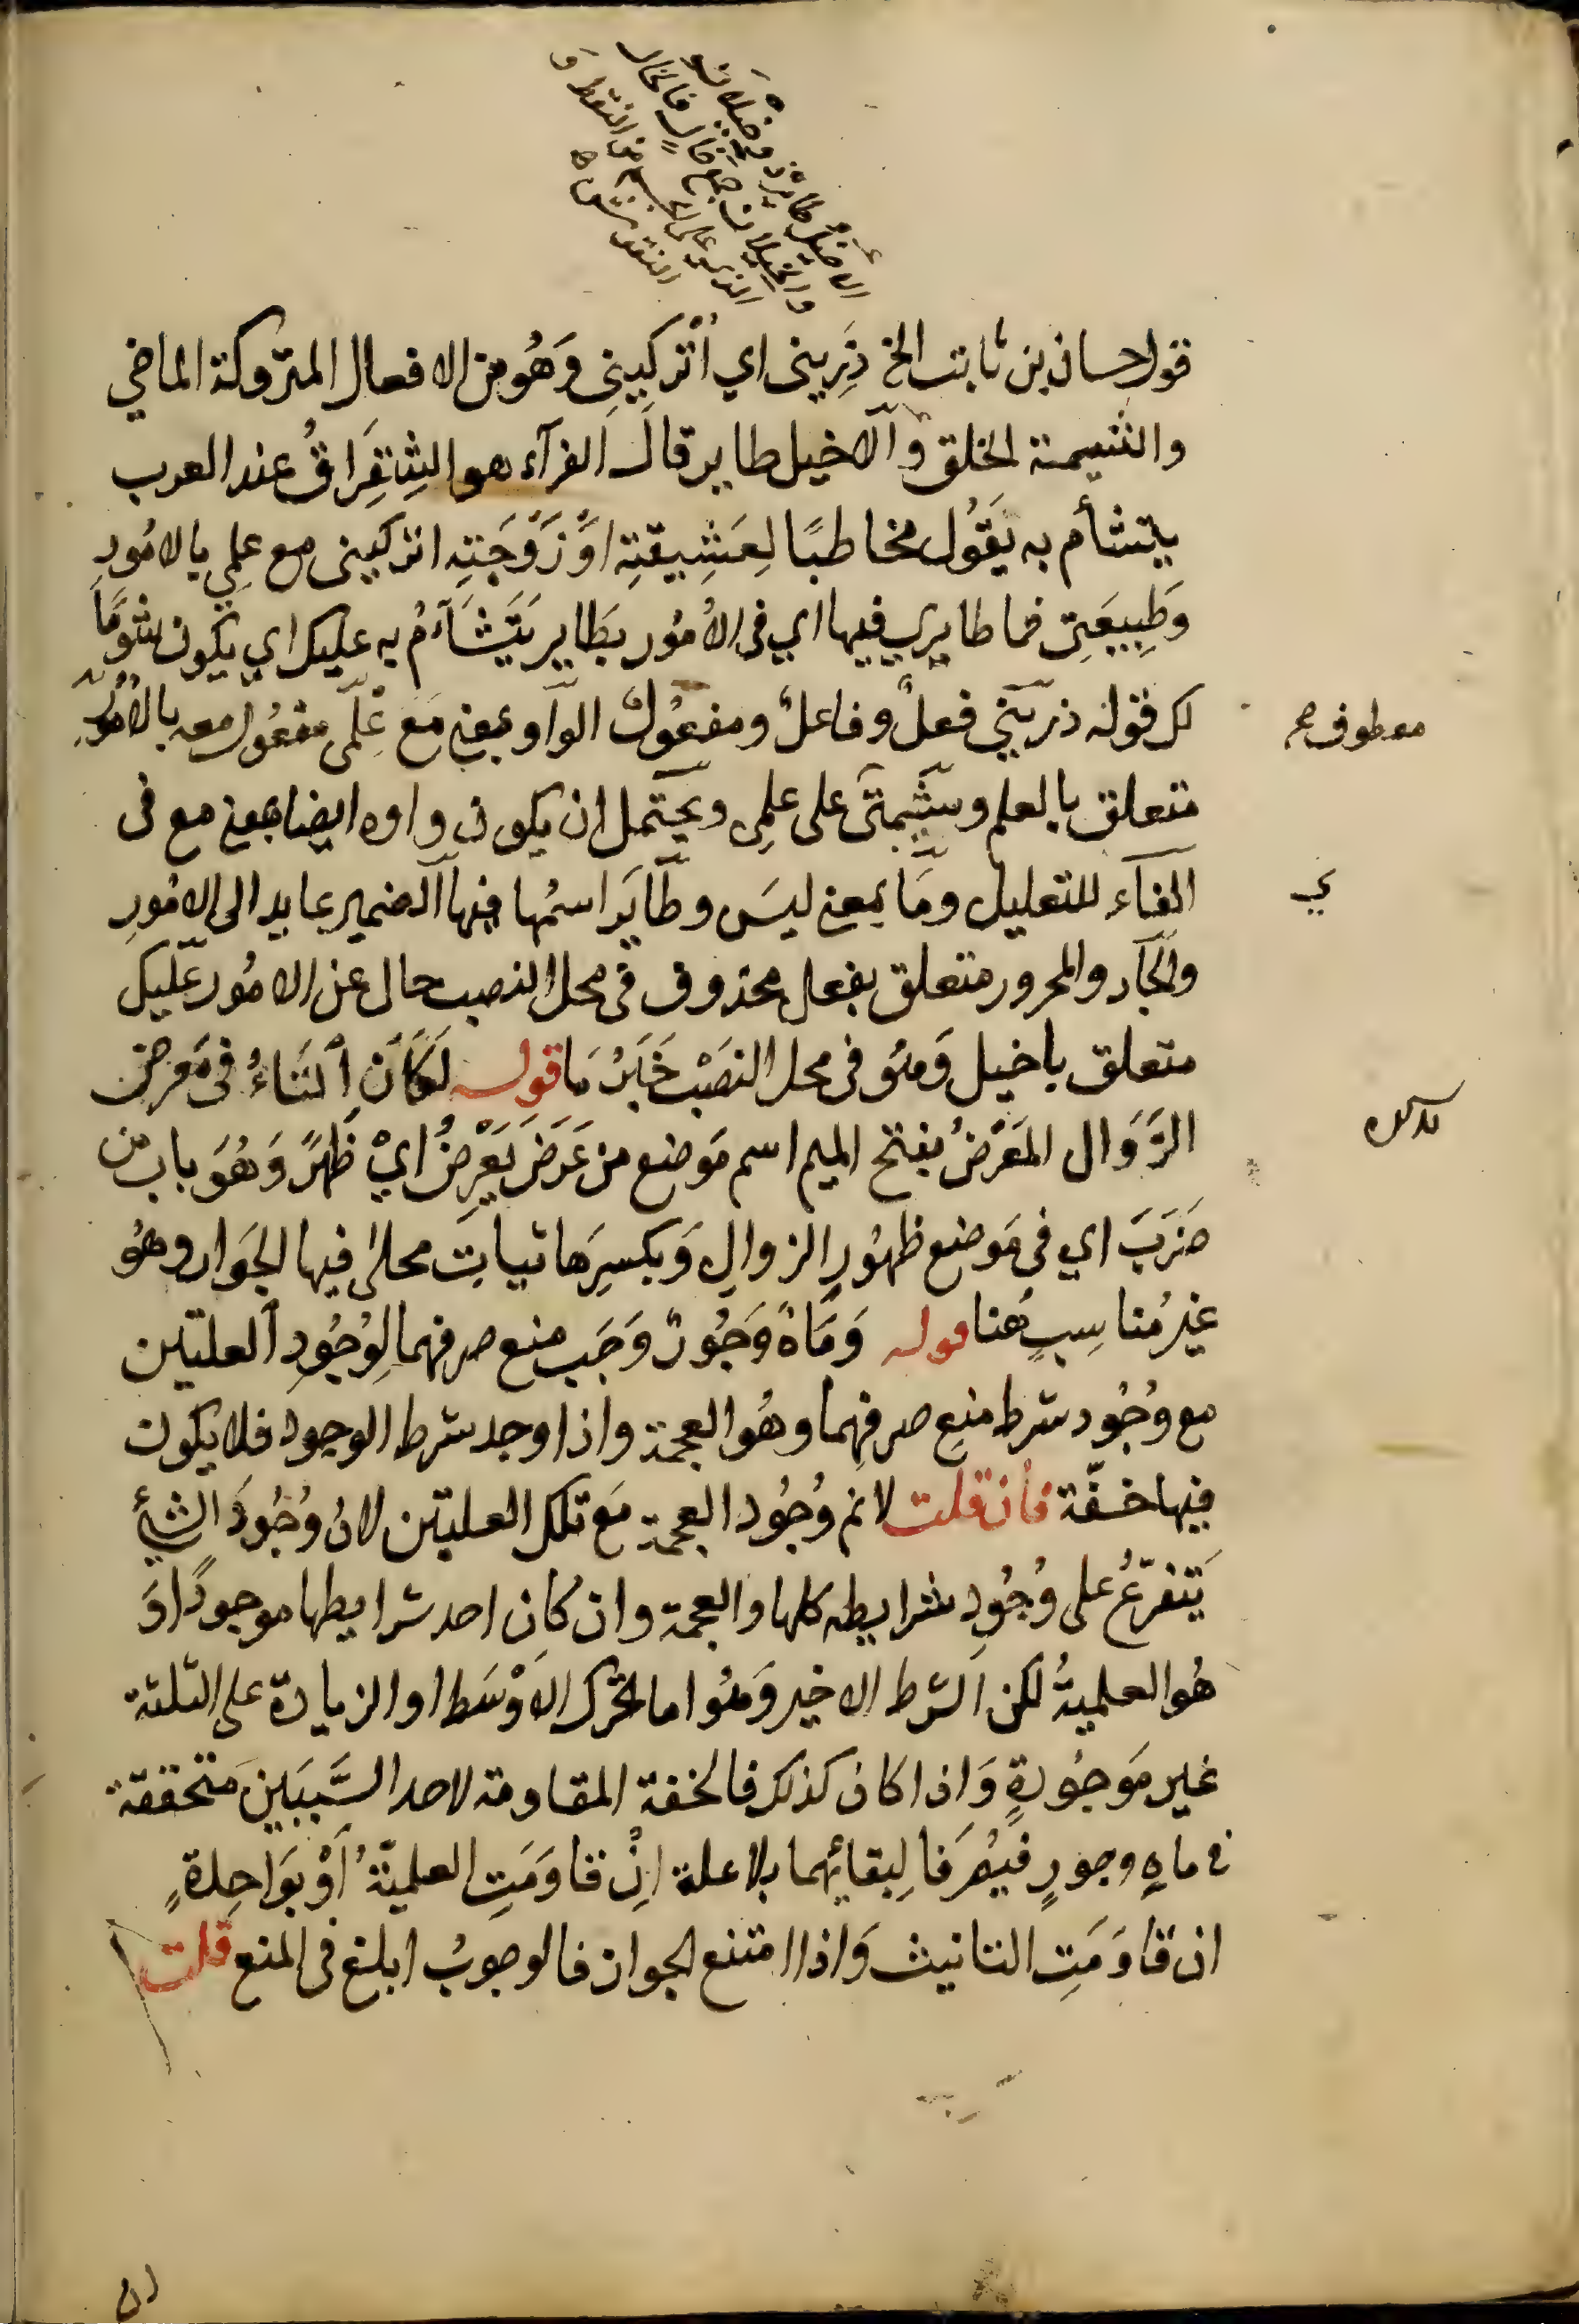 الاخيل طاير وخيلانه
والخيلان جمع خال فالخال
الذي على الجسد من النقط و
النقر
قول حسان بن ثابت الخ ذَرِيني اي اُتْرُكيني وَهُو من الافعال المتروكة الماضي
والشيمة الخلق وَالاخيل طاير قالَ الفرآء هو الشِقِرَاقُ عند العرب
يتشأم به يَقُول مخاطبًا لِعَشِيقتِه اَوْ زَوْجَتِه اتركيني مع عِلمِي بالامُورِ
وَطِبيعَتِى فما طايري فيها اي فى الأمُور بطَاير يَتَشَآءَمُ به عليك اي يكون شُومًا
لك قوله ذريني فعلٌ وفاعلٌ ومفعُولٌ الوَاو بمعنى مَع عِلمي مفعُول معه بالأمُورِ
معطوف صح
متعلق بالعلم وشيمتى على علمِي ويحتمل ان يكون واوه ايضا بمعنى مع فى
الفآء للتعليل ومَا بمعنى ليسَ وطايَر اسمُها فيها الضمير عايد الى الامُورِ
ي
والجار والمجرور متعلق بفعل محذوف فى محل النصب حال عن الامُور عليك
متعلق باخيل وَهُو فى محل النصَبْ خَبَرُ مَا قوله لَكَانَ البَنَاءُ فى مَعرِض
الزَوَال المَعْرِضُ بفتح الميم اسم مَوضع من عَرَضَ يَعْرِضُ ايْ ظَهَرَ وَهُوَ باب من
ضَرَبَ اي فى مَوضع ظهُورِ الزوالِ وَبكسِرهَا ثيابٌ محلى فيها الجوَار وهُو
غيرُ مُناسِبٍ هُنا قوله وَمَاهُ وَجُورُ وَجَب منع صرفهما لِوُجُودِ العلتين
مع وُجُود شرط منعِ صرفِهما وهُو العجمة واذا وجد شرط الوجود فلا يكون
فيها خفّة فان قلت لانم وُجُود العجمة مَع تلك العلتين لانُ وُجُودَ الشئ
يَتفرّعُ على وُجُودِ شرايطه كلها والعجمة وان كان احد شرايطها موجودًا وَ
هُو العلميةُ لكن الشرط الاخير وَهُو اما تحرك الاَوْسَط او الزيادة على الثلثة
غير مَوجُودةٍ وَاذا كان كذلك فالخفة المقاومة لاحد السَّبَبَينِ متحققة
فى ماهٍ وجورٍ فيُصْرَفا لِبقائِهما بلا علة اِنْ قاوَمَتِ العلميّةُ اَوْ بوَاحِدةٍ
ان قَاوَمَتِ التانيث وَاذا امتنع الجواز فالوجوبُ ابلغ فى المنع قلت